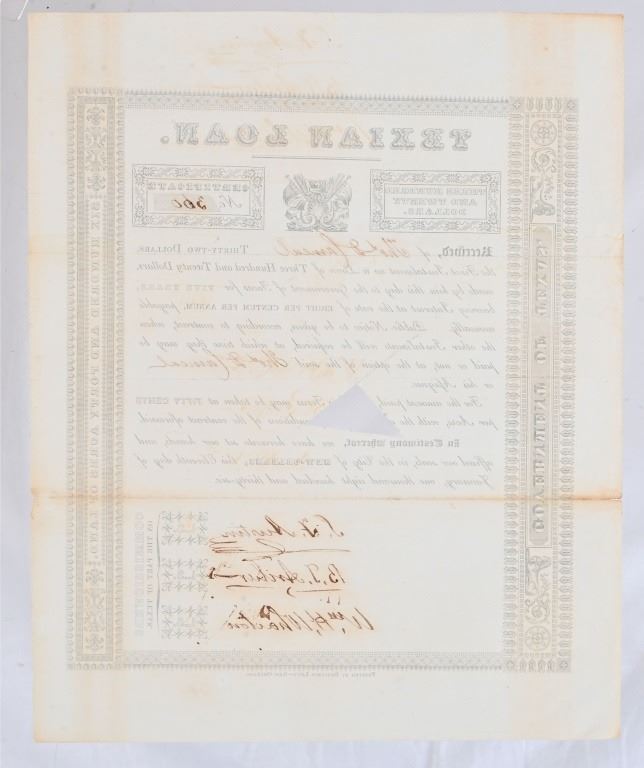 TEXIAN LOAN.
CERTIFICATE
No. 360
THREE HUNDRED
AND TWENTY
DOLLARS.
Received, of Thos. D. Carneal THIRTY-TWO DOLLARS,
the First Instalment on a Loan of Three Hundred and Twenty Dollars,
made by him this day to the Government of Texas for FIVE YEARS,
bearing Interest at the rate of EIGHT PER CENTUM PER ANNUM, payable
annually. Public Notice to be given, according to contract, when
the other Instalments will be required, at which time they may be
paid or not, at the option of the said Thos. D. Carneal
or his Assigns.
For the amount paid, in Texas may be taken at FIFTY CENTS
per Acre, with the conditions of the contract aforesaid.
In Testimony whereof, we have hereunto set our hands, and
affixed our seals, in the City of NEW-ORLEANS, this Eleventh day of
January, one thousand eight hundred and thirty-six.
S. F. Austin
B. T. Archer
Wm. H. Wharton
COMMISSIONERS
ON THE PART OF TEXAS.
GOVERNMENT OF TEXAS
SIX HUNDRED AND FORTY ACRES OF LAND